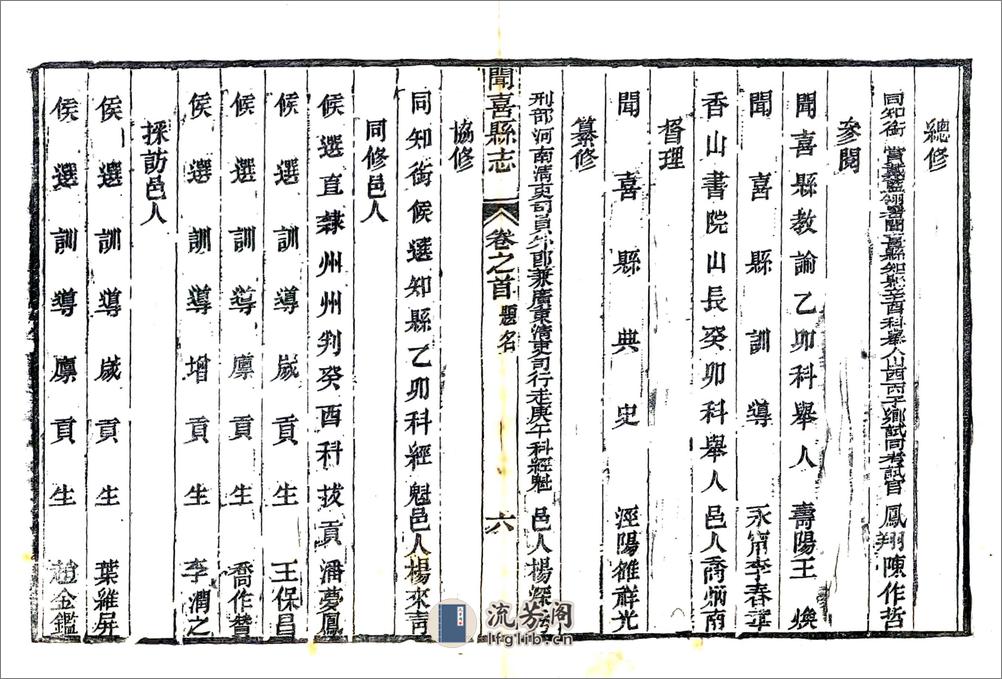 總修
同知銜 賞戴藍翎署聞喜縣知縣辛酉科舉人山西丙子鄉試同考試官 鳳翔陳作哲
參閱
聞喜縣教諭乙卯科舉人 壽陽王 煥
聞喜縣訓導 永甯李春華
香山書院山長癸卯科舉人 邑人喬炳南
督理
聞喜縣典史 涇陽雒祥光
纂修
刑部河南清吏司員外郎兼廣東清吏司行走庚午科經魁 邑人楊深秀
聞喜縣志 卷之首 題名 六
協修
同知銜候選知縣乙卯科經魁 邑人楊來青
同修邑人
候選直隸州州判癸酉科拔貢 潘夢鳳
候選訓導歲貢生 王保昌
候選訓導廩貢生 喬作
候選訓導增貢生 李潤之
採訪邑人
候選訓導歲貢生 葉維屏
候選訓導廩貢生 趙金鑑
流芳阁
lfglib.cn